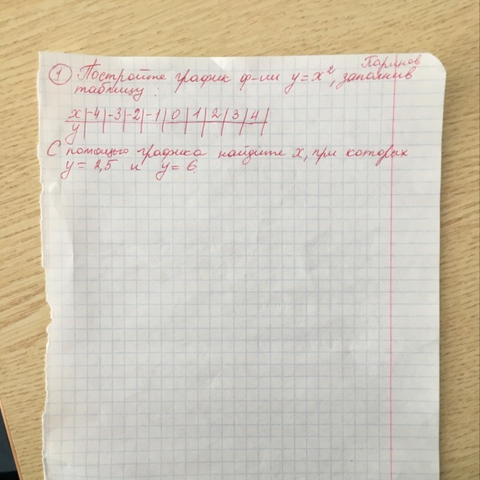 Паринов
1 Постройте график ф-ии y=x², заполнив
таблицу:
x -4 -3 -2 -1 0 1 2 3 4
y
С помощью графика найдите x, при которых
y=2,5 и y=6